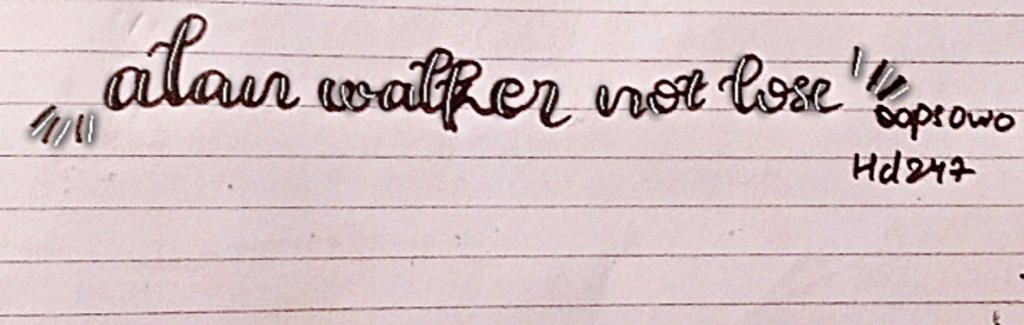 alan walker not lose
oopsowo
Hd247